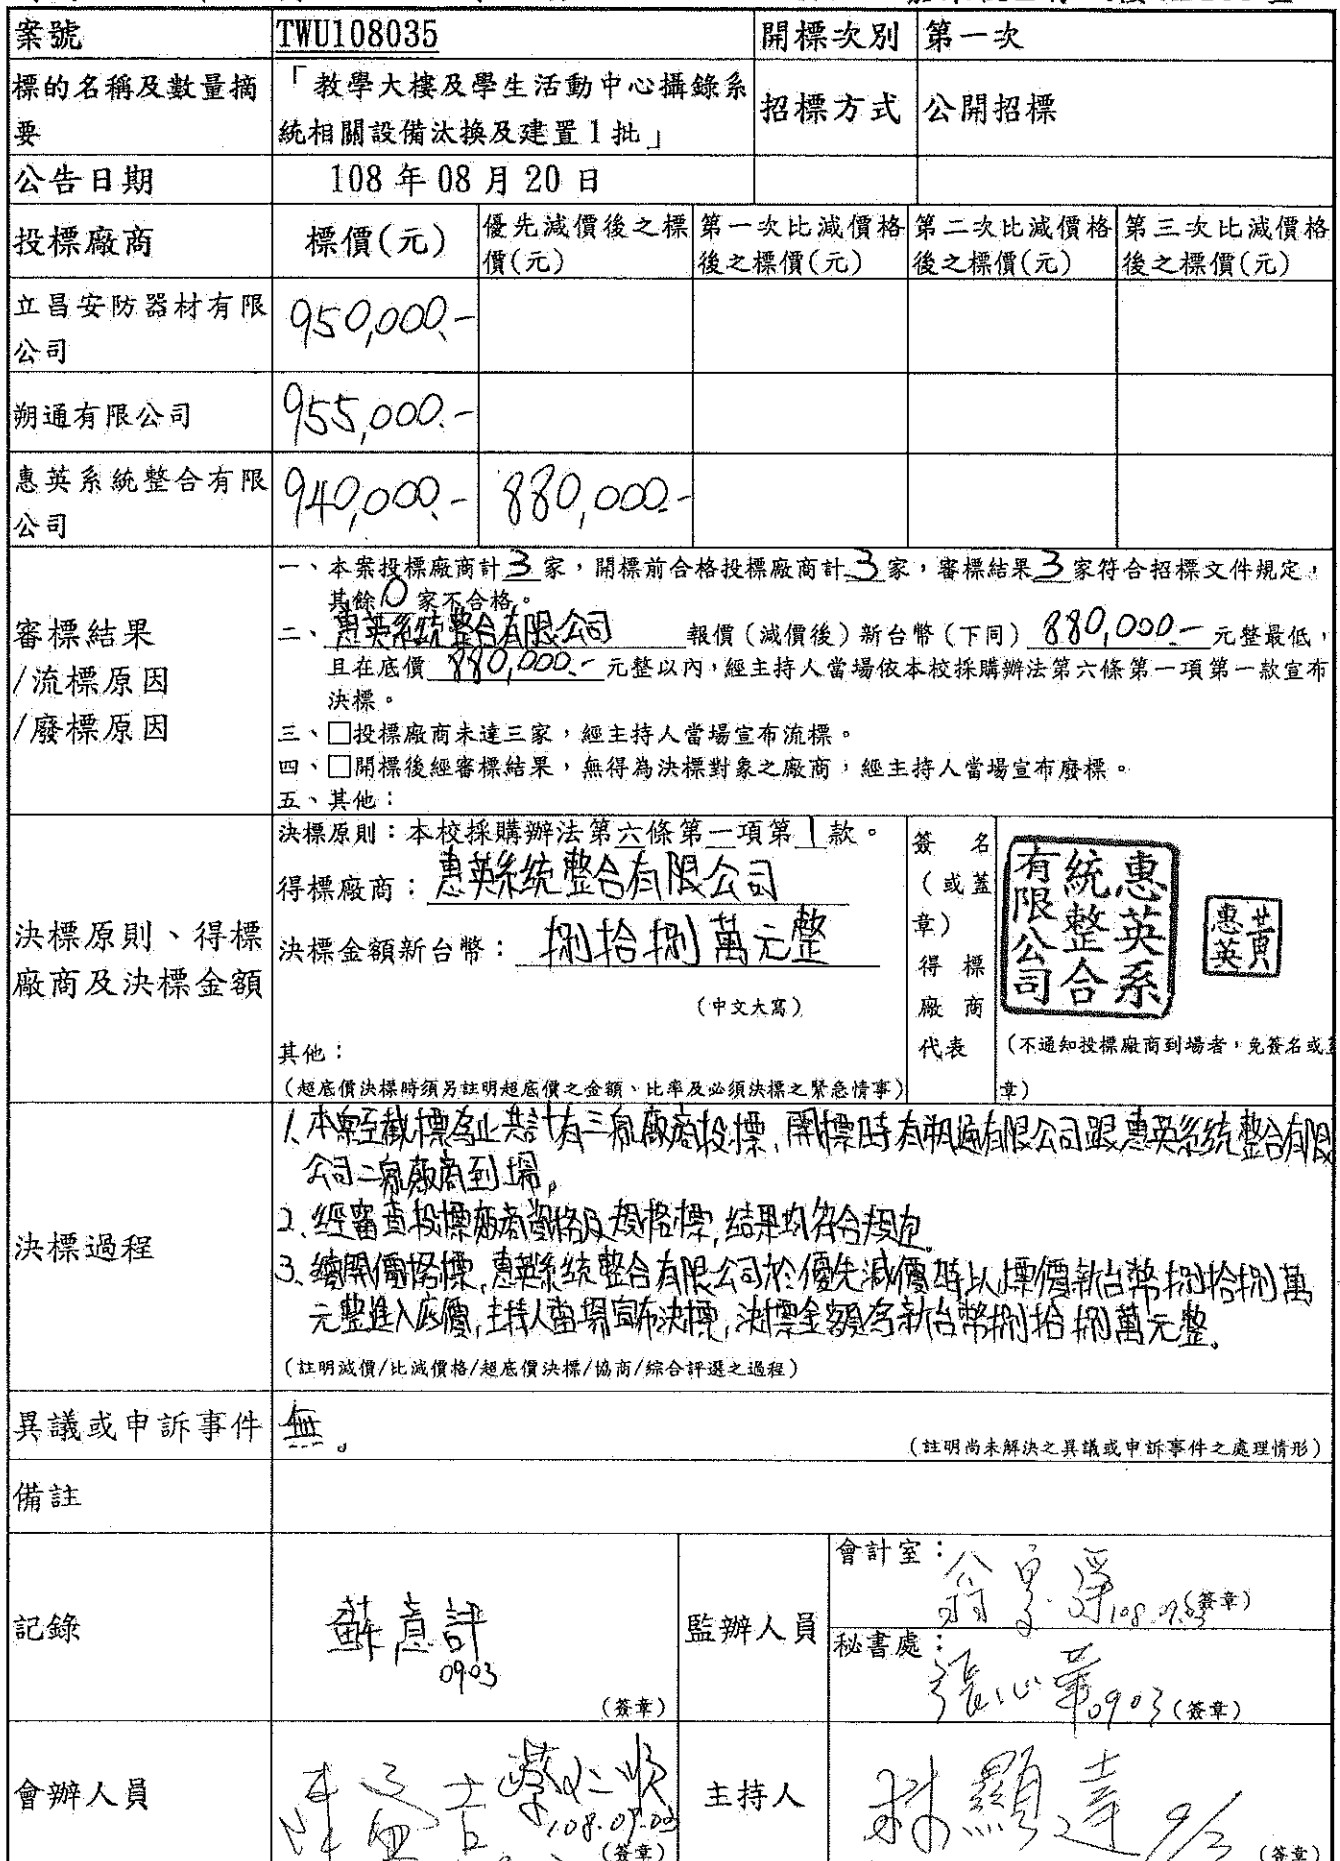 案號 TWU108035 開標次別 第一次
標的名稱及數量摘要 「教學大樓及學生活動中心攝錄系統相關設備汰換及建置1批」 招標方式 公開招標
公告日期 108 年 08 月 20 日
投標廠商 標價(元) 優先減價後之標價(元) 第一次比減價格後之標價(元) 第二次比減價格後之標價(元) 第三次比減價格後之標價(元)
立昌安防器材有限公司 950,000.-
朔通有限公司 955,000.-
惠英系統整合有限公司 940,000.- 880,000.-
審標結果
/流標原因
/廢標原因
一、本案投標廠商計3家，開標前合格投標廠商計3家，審標結果3家符合招標文件規定，
其餘0家不合格。
二、惠英系統整合有限公司 報價(減價後)新台幣(下同) 880,000.- 元整最低，
且在底價 880,000.- 元整以內，經主持人當場依本校採購辦法第六條第一項第一款宣布
決標。
三、□投標廠商未達三家，經主持人當場宣布流標。
四、□開標後經審標結果，無得為決標對象之廠商，經主持人當場宣布廢標。
五、其他：
決標原則、得標
廠商及決標金額
決標原則：本校採購辦法第六條第一項第1款。
得標廠商：惠英系統整合有限公司
決標金額新台幣：捌拾捌萬元整
(中文大寫)
其他：
(超底價決標時須另註明超底價之金額、比率及必須決標之緊急情事)
簽名
(或蓋
章)
得標
廠商
代表
惠英系
統整合
有限公司
黃
惠英
(不通知投標廠商到場者，免簽名或蓋
章)
決標過程
1.本案至截標為止共計有三家廠商投標，開標時有朔通有限公司跟惠英系統整合有限
公司二家廠商到場。
2.經審查投標廠商資格及規格標，結果均符合規定。
3.續開價格標，惠英系統整合有限公司於優先減價時以標價新台幣捌拾捌萬
元整進入底價，主持人當場宣布決標，決標金額為新台幣捌拾捌萬元整。
(註明減價/比減價格/超底價決標/協商/綜合評選之過程)
異議或申訴事件 無。
(註明尚未解決之異議或申訴事件之處理情形)
備註
記錄 蘇意計
0903
(簽章)
監辦人員
會計室：
108.09.03
(簽章)
秘書處：
張心華 0903 (簽章)
會辦人員 蔡仁順
108.09.03
(簽章)
主持人 林顯達 9/3
(簽章)